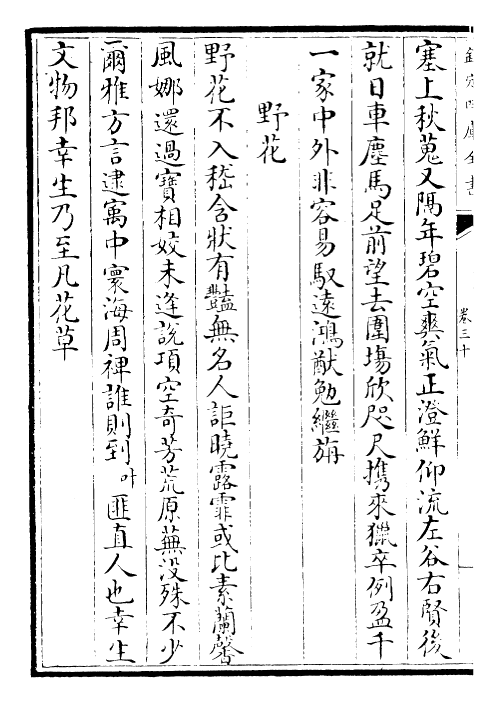 欽定四庫全書
卷三十
塞上秋蒐又隔年碧空爽氣正澄鮮仰流左谷右賢後
就日車塵馬足前望去圍塲欣咫尺携來獵卒例盈千
一家中外非容易馭遠鴻猷勉繼旃
野花
野花不入嵇含狀有豔無名人詎曉露霏或比素蘭馨
風娜還過寶相姣未逢說項空奇芳荒原蕪没殊不少
爾雅方言逮寓中寰海周禆誰則到叶匪直人也幸生
文物邦幸生乃至凡花草